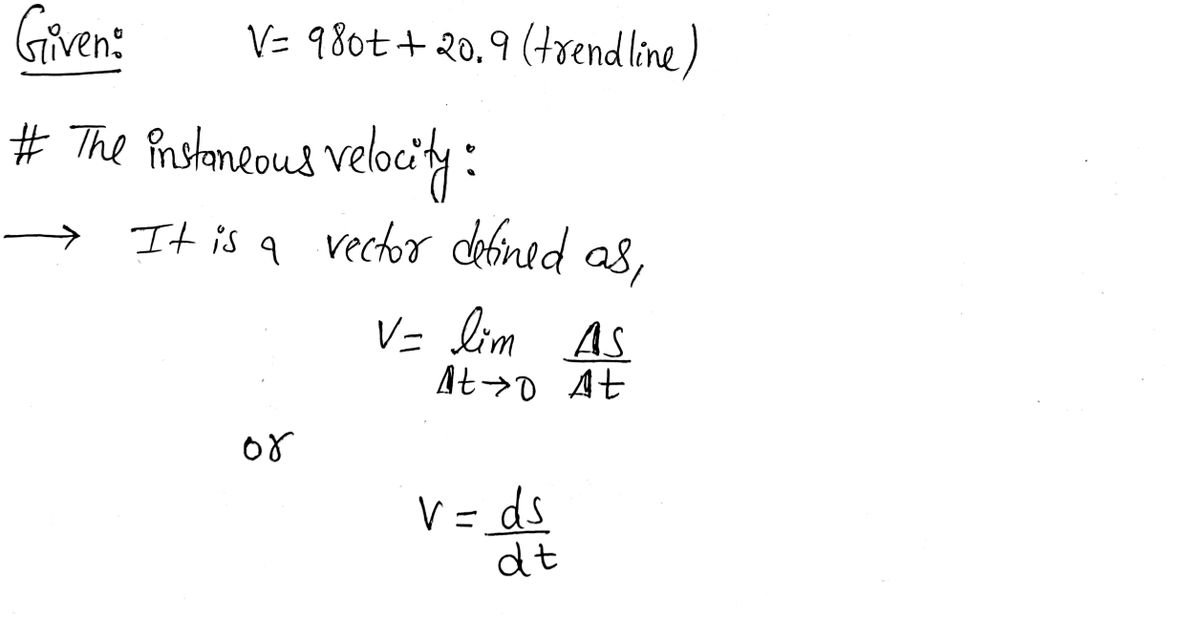 Given: V= 980t + 20.9 (trendline)
# The instaneous velocity:
→ It is a vector defined as,
V= lim ΔS
Δt→0 Δt
or
V = ds
dt